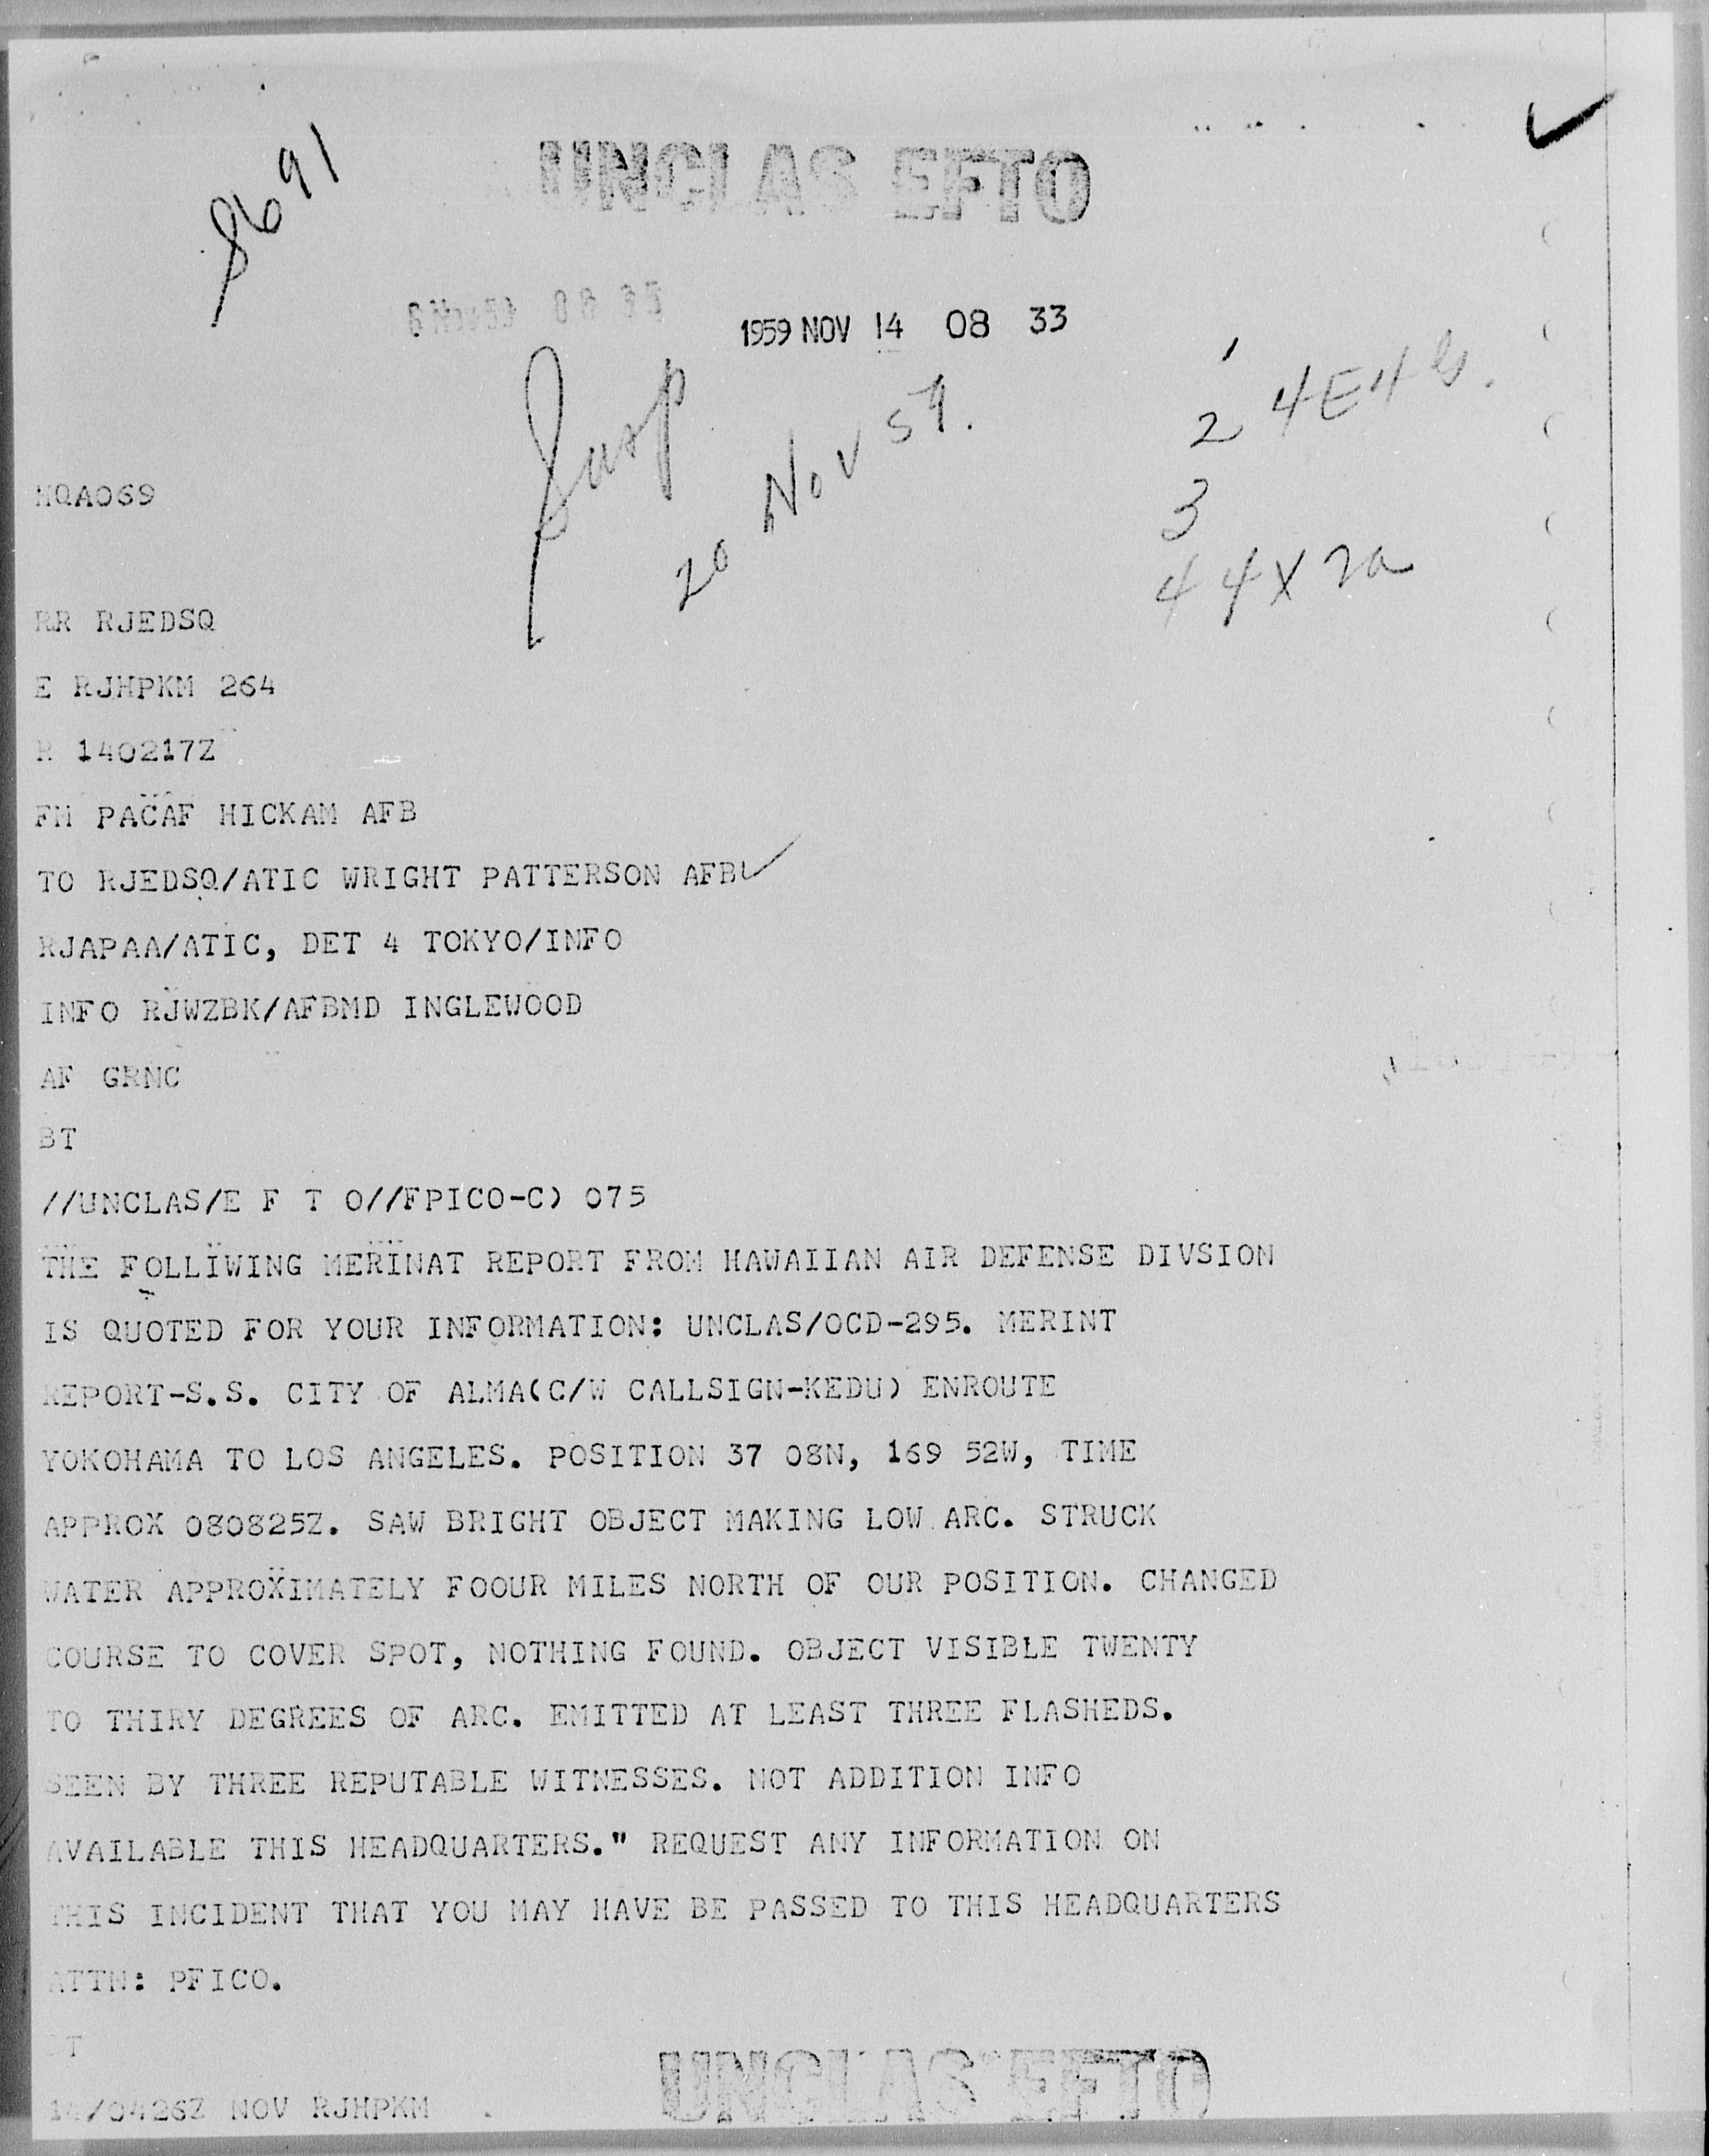 8691
UNCLAS EFTO
1959 NOV 14 08 33
Susp
20 Nov 59.
1
2 4E4
3
4 4X2a
HQA069
RR RJEDSQ
E RJHPKM 264
R 140217Z
FM PACAF HICKAM AFB
TO RJEDSQ/ATIC WRIGHT PATTERSON AFB
RJAPAA/ATIC, DET 4 TOKYO/INFO
INFO RJWZBK/AFBMD INGLEWOOD
AF GRNC
BT
//UNCLAS/E F T O//FPICO-C) 075
THE FOLLIWING MERINAT REPORT FROM HAWAIIAN AIR DEFENSE DIVSION
IS QUOTED FOR YOUR INFORMATION: UNCLAS/OCD-295. MERINT
REPORT-S.S. CITY OF ALMA(C/W CALLSIGN-KEDU) ENROUTE
YOKOHAMA TO LOS ANGELES. POSITION 37 08N, 169 52W, TIME
APPROX 080825Z. SAW BRIGHT OBJECT MAKING LOW ARC. STRUCK
WATER APPROXIMATELY FOOUR MILES NORTH OF OUR POSITION. CHANGED
COURSE TO COVER SPOT, NOTHING FOUND. OBJECT VISIBLE TWENTY
TO THIRY DEGREES OF ARC. EMITTED AT LEAST THREE FLASHEDS.
SEEN BY THREE REPUTABLE WITNESSES. NOT ADDITION INFO
AVAILABLE THIS HEADQUARTERS." REQUEST ANY INFORMATION ON
THIS INCIDENT THAT YOU MAY HAVE BE PASSED TO THIS HEADQUARTERS
ATTN: PFICO.
BT
14/0426Z NOV RJHPKM
UNCLAS EFTO